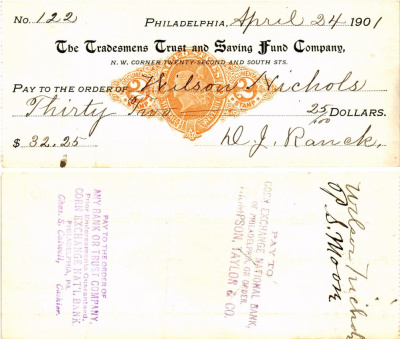 No. 122 PHILADELPHIA, April 24 1901
The Tradesmens Trust and Saving Fund Company,
N. W. CORNER TWENTY-SECOND AND SOUTH STS.
PAY TO THE ORDER OF Wilson Nichols
Thirty Two 25/100 DOLLARS.
$ 32.25 D. J. Ranck,
2 2
STAMP
PAY TO THE ORDER OF
ANY BANK OR TRUST COMPANY,
Prior Endorsements Guaranteed.
CORN EXCHANGE NAT'L BANK
PHILADELPHIA, PA.
Chas. S. Calwell,
Cashier.
PAY TO
CORN EXCHANGE NATIONAL BANK,
OF PHILADELPHIA OR ORDER.
THOMPSON, TAYLOR & CO.
Wilson Nichols
P. S. Moon